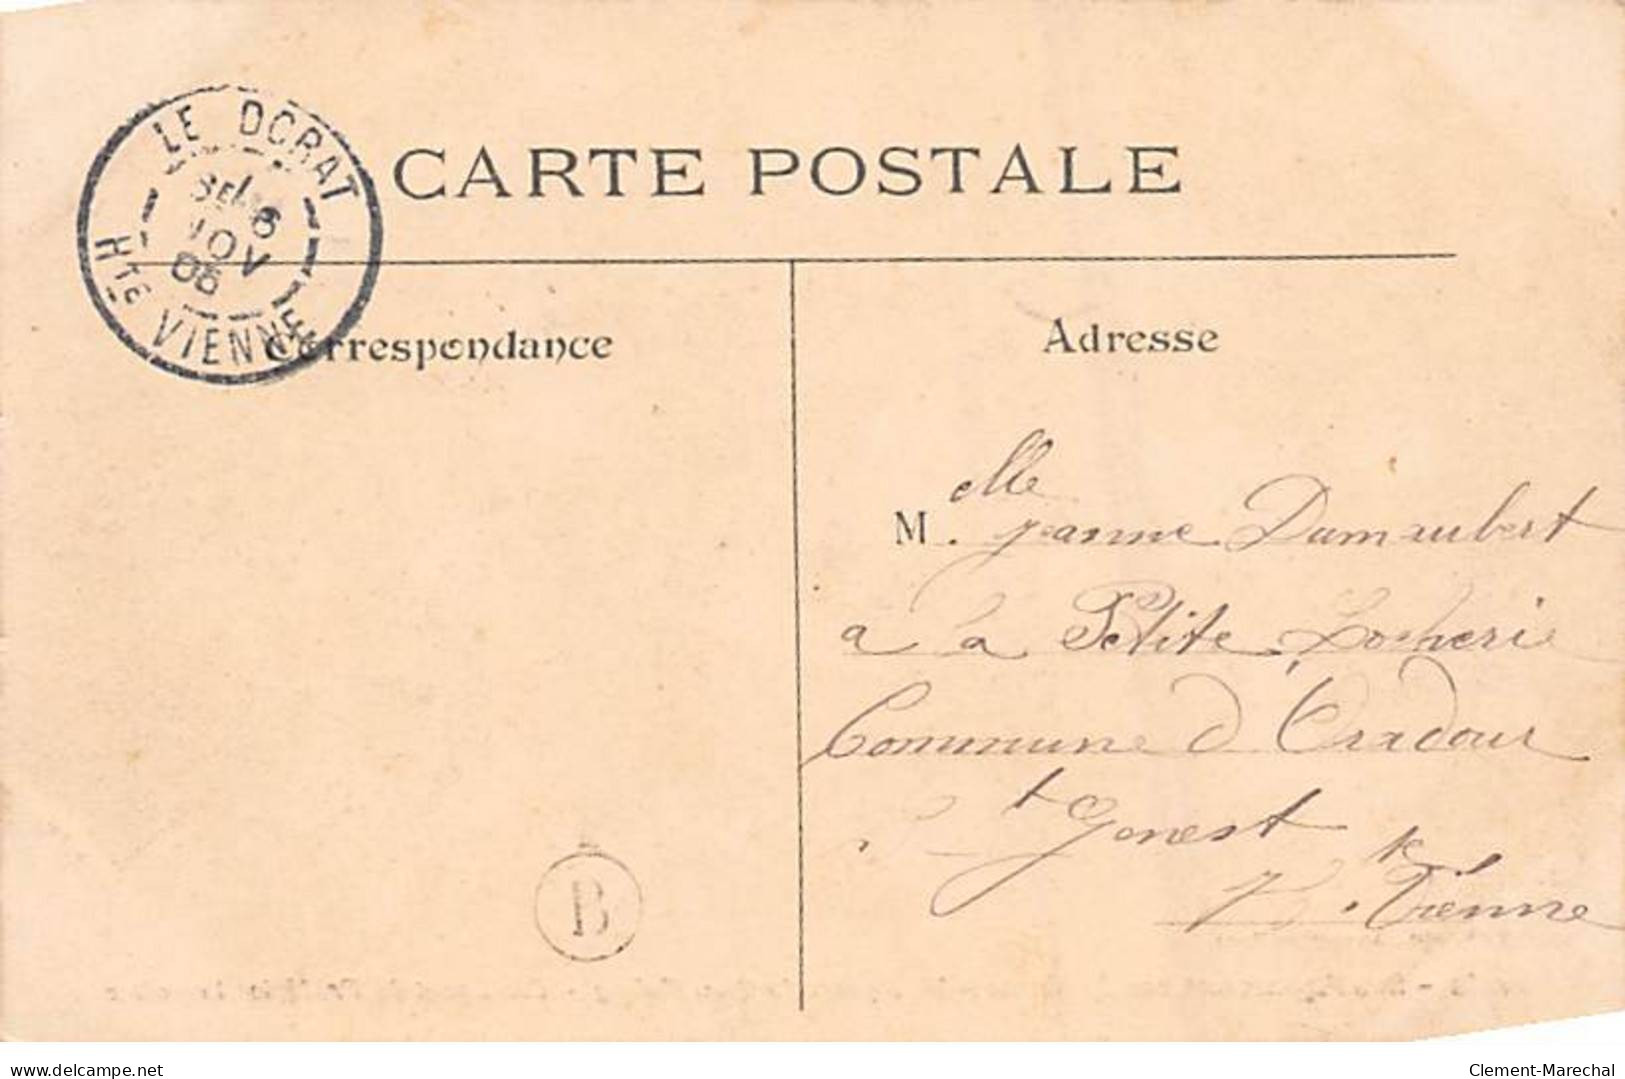 CARTE POSTALE
LE DORAT
6
NOV
05
Hte VIENNE
Correspondance
Adresse
M.elle Jeanne Dumaubert
a la Petite Locherie
Commune d'Oradour
St Genest
Hte Vienne
B
delcampe.net
Clement-Marechal